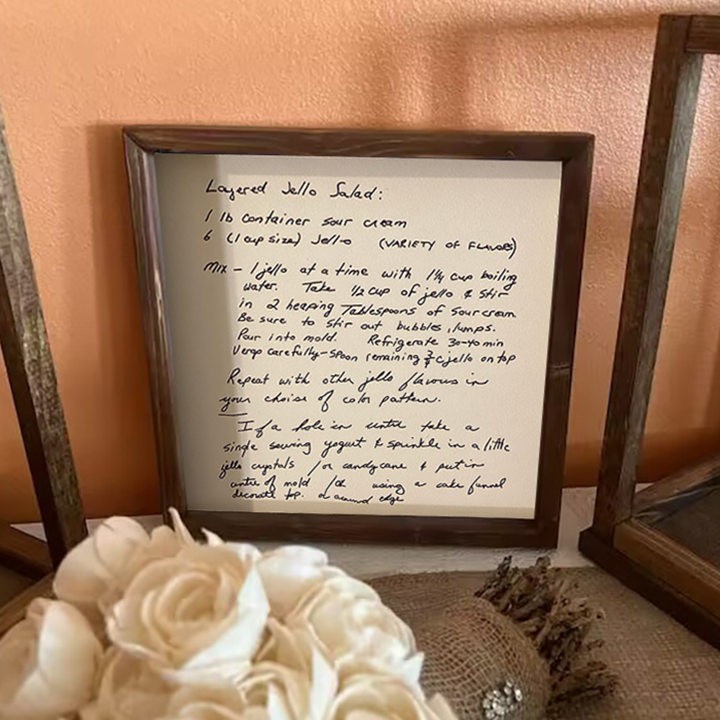 Layered Jello Salad:
1 lb container sour cream
6 (1 cup size) Jell-o (VARIETY OF FLAVORS)
Mix - 1 jello at a time with 1¼ cup boiling
water. Take ½ cup of jello & stir
in 2 heaping Tablespoons of sour cream
Be sure to stir out bubbles, lumps.
Pour into mold. Refrigerate 30-40 min
Very carefully - spoon remaining ¾ c jello on top
Repeat with other jello flavours in
your choise of color pattern.
If a hole in centre take a
single serving yogurt & sprinkle in a little
jello crystals /or candy cane & put in
centre of mold /or using a cake funnel
decorate top. or around edge